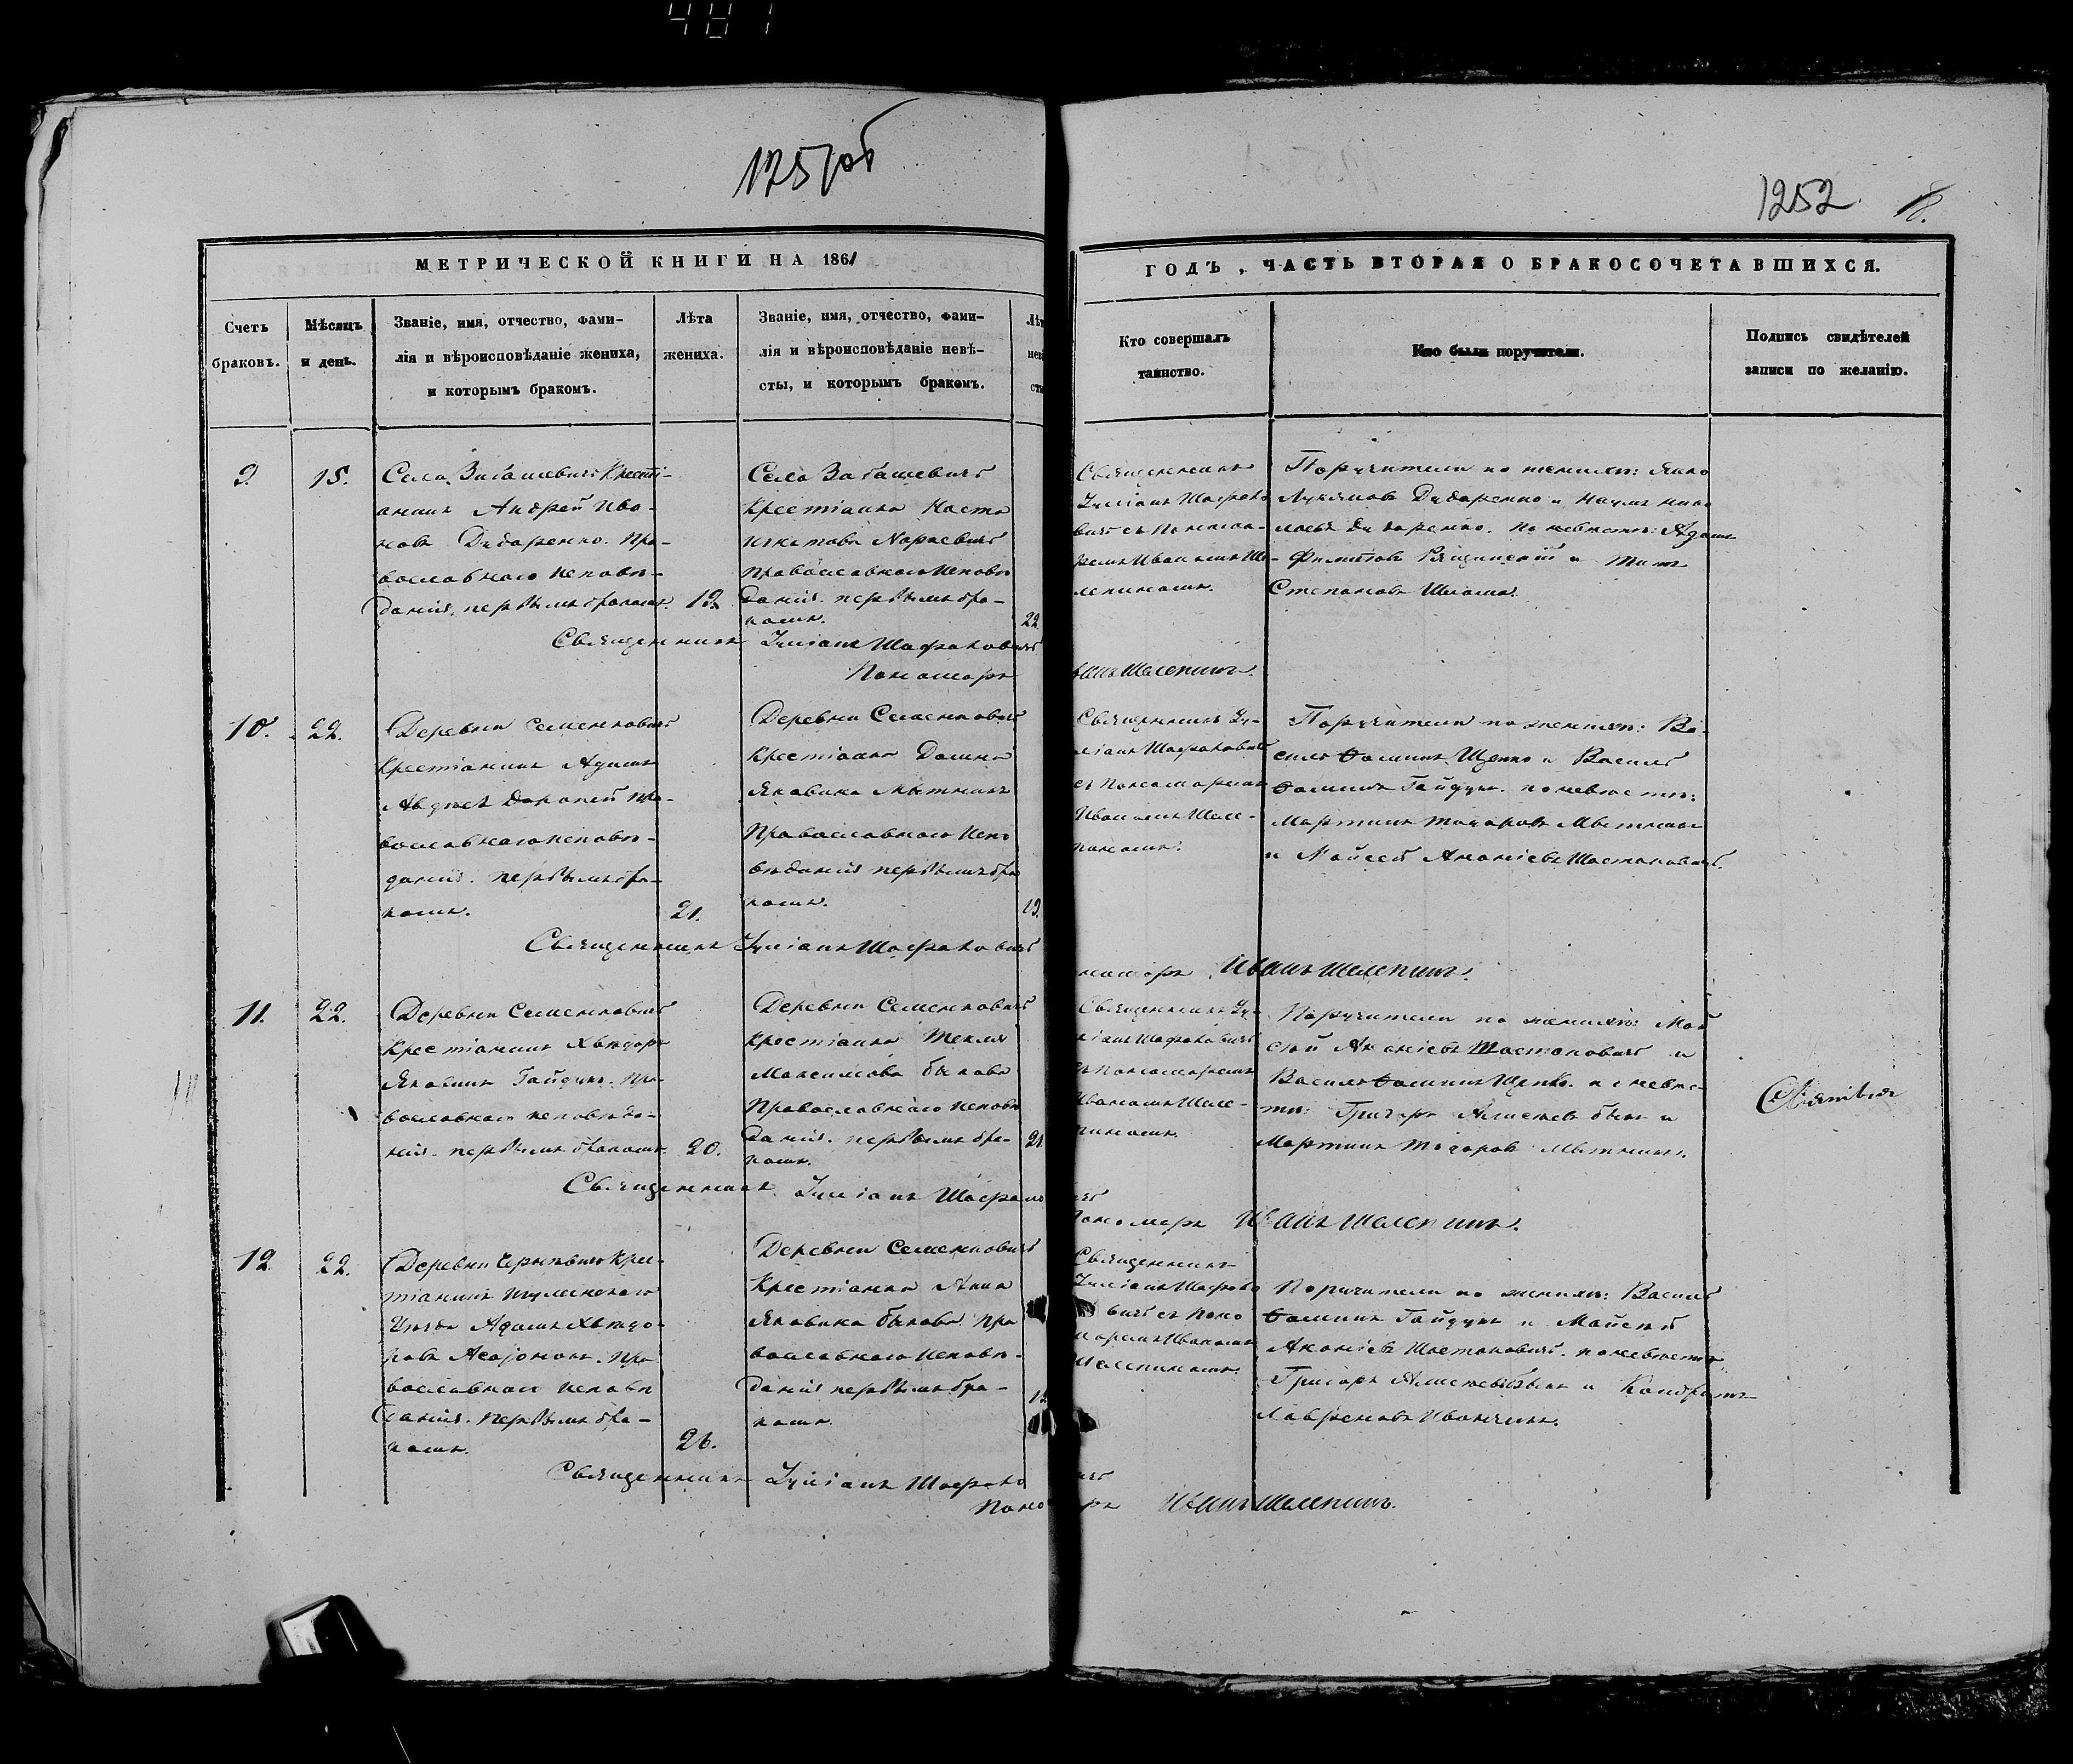 481
1251об
1252
18.
МЕТРИЧЕСКОЙ КНИГИ НА 1861
ГОДЪ, ЧАСТЬ ВТОРАЯ О БРАКОСОЧЕТАВШИХСЯ.
Счетъ
браковъ.
Мѣсяцъ
и день.
Званіе, имя, отчество, фами-
лія и вѣроисповѣданіе жениха,
и которымъ бракомъ.
Лѣта
жениха.
Званіе, имя, отчество, фами-
лія и вѣроисповѣданіе невѣ-
сты, и которымъ бракомъ.
Лѣт
нев
сты
Кто совершалъ
таинство.
Кто были поручители.
Подпись свидѣтелей
записи по желанію.
9.
15.
Села Забашевичь Крестi-
янинъ Андрей Ива-
новъ Дударенко. Пра-
вославнаго исповѣ-
данія. первымъ бракомъ.
19.
Села Забашевичь
крестіанка Наста
православнаго исповѣ
данія. первымъ бра-
комъ.
22
Священникъ
Іуліанъ Шафрано
вичъ съ Понома-
ремъ Иваномъ Ше-
лепиномъ.
Поручители по женихѣ: Янко
Лукьяновъ Дударенко и Наумъ Нико
лаевъ Дударенко. По невѣстѣ: Адамъ
и Титъ
Степановъ
Священникъ Іуліанъ Шафрановичъ
Пономарь
ванъ Шелепинъ.
10.
22.
Деревни Семенковичь
крестіанинъ Адамъ
пра-
вославнаго исповѣ-
данія. первымъ бра-
комъ.
21.
Деревни Семенковичь
крестіанка Домна
Яковина Мытникъ
Православнаго испо
вѣданія первымъ бра
комъ.
19.
Священникъ Іу-
ліанъ Шафрановичъ
съ Пономаремъ
Иваномъ Шеле-
пиномъ.
Поручители по женихѣ: Ва-
силь Ѳоминъ Щепко и Василь
Ѳоминъ Гайдукъ. по невѣстѣ:
Мартинъ Тодоровъ Мытникъ
и Мойсей Ананіевъ Шостаковичъ.
Священникъ Іуліанъ Шафрановичъ
номарь Иванъ Шелепинъ.
11.
22.
Деревни Семенковичь
крестіанинъ Хведоръ
Яковинъ Гайдукъ. Пра-
вославнаго исповѣда-
нія. первымъ бракомъ.
20.
Деревни Семенковичь
крестіанка Текля
Максимова Быкова
Православнаго исповѣ
данія. первымъ бра-
комъ.
21.
Священникъ Іу-
ліанъ Шафрановичъ
съ Пономаремъ
Иваномъ Шеле-
пиномъ.
Поручители по женихѣ: Мой
сей Ананіевъ Шостаковичъ и
Василь Ѳоминъ Щепко. по невѣс-
тѣ: Григоръ Алисѣевъ Быкъ и
Мартинъ Тодоровъ Мытникъ.
Священникъ Іуліанъ Шафрано
чъ
Пономарь Иванъ Шелепинъ.
12.
22.
Деревни Крес-
тіанинъ Игуменскаго
Уѣзда Адамъ Хведо-
ровъ Пра
вославнаго исповѣ
данія. первымъ бра-
комъ.
26.
Деревни Семенковичь
Крестіанка Анна
Яковина Быкова. Пра
вославнаго исповѣ-
данія первымъ бра-
комъ.
Священникъ
Іуліанъ Шафрано
вичъ съ Поно
маремъ Иваномъ
Шелепиномъ.
Поручители по женихѣ: Василь
Ѳоминъ Гайдукъ и Мойсей
Ананіевъ Шостаковичъ. по невѣстѣ
Григоръ Алисѣевъ Быкъ и Кондратъ
Лавреновъ Иванчикъ.
Священникъ Іуліанъ Шафрано
чъ
Пономарь Иванъ Шелепинъ.